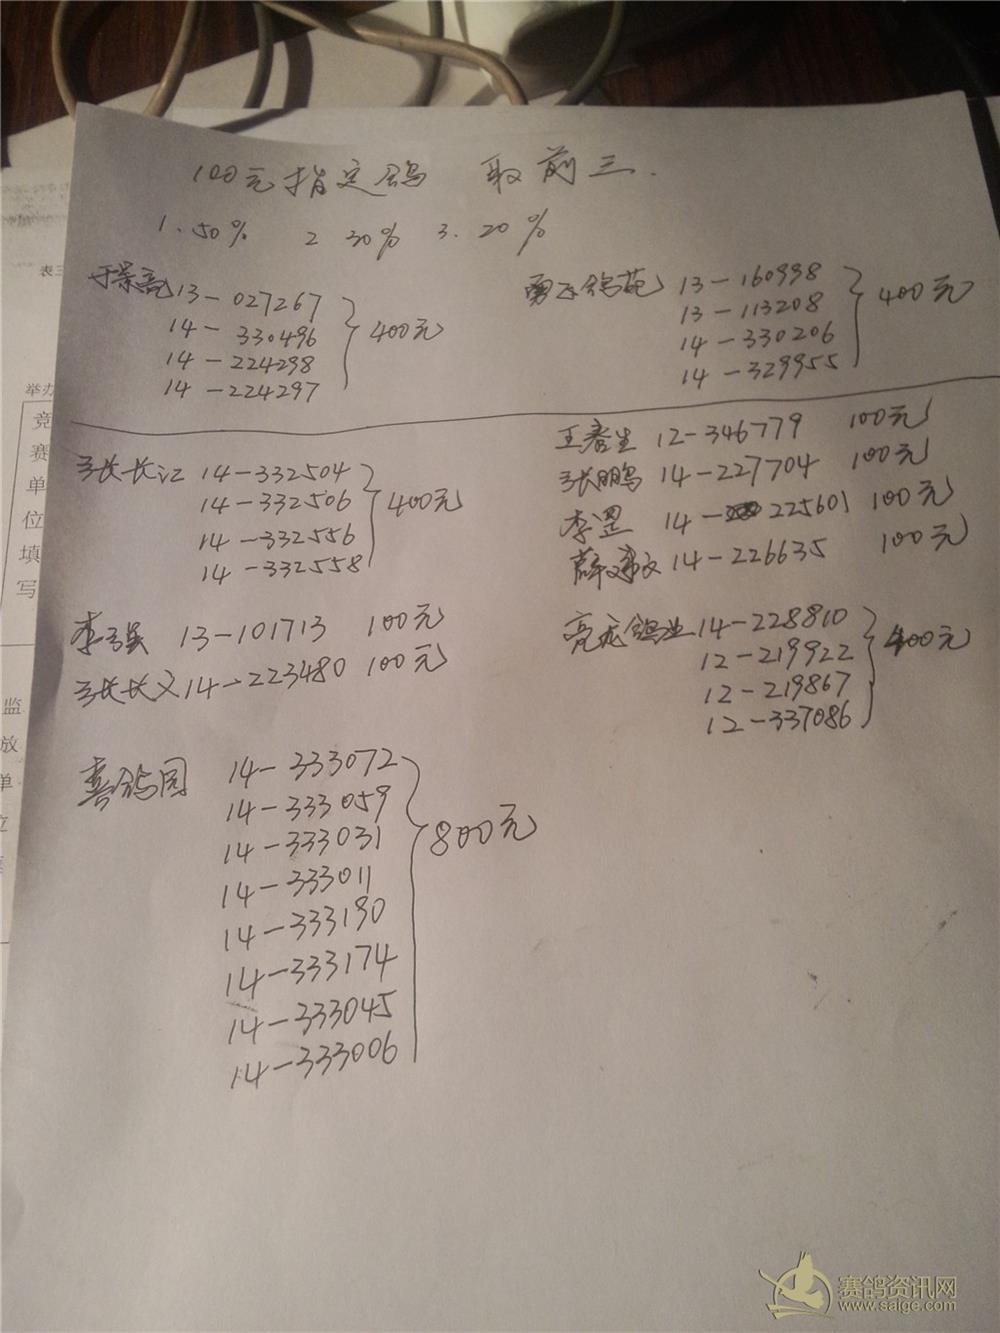 100元指定鸽 取前三.
1.50% 2 30% 3.20%
于景亮 13-027267
14-330496
14-224298
14-224297
400元
勇飞鸽苑 13-160998
13-113208
14-330206
14-329955
400元
张长江 14-332504
14-332506
14-332556
14-332558
400元
王春生 12-346779 100元
张鹏 14-227704 100元
李罡 14-225601 100元
薛文 14-226635 100元
李强 13-101713 100元
张长义 14-223480 100元
亮龙鸽业 14-228810
12-219922
12-219867
12-337086
400元
喜鸽园 14-333072
14-333059
14-333031
14-333011
14-333190
14-333174
14-333045
14-333006
800元
表三
举办
竞
赛
单
位
填
写
监
放
单
位
赛鸽资讯网
www.saige.com